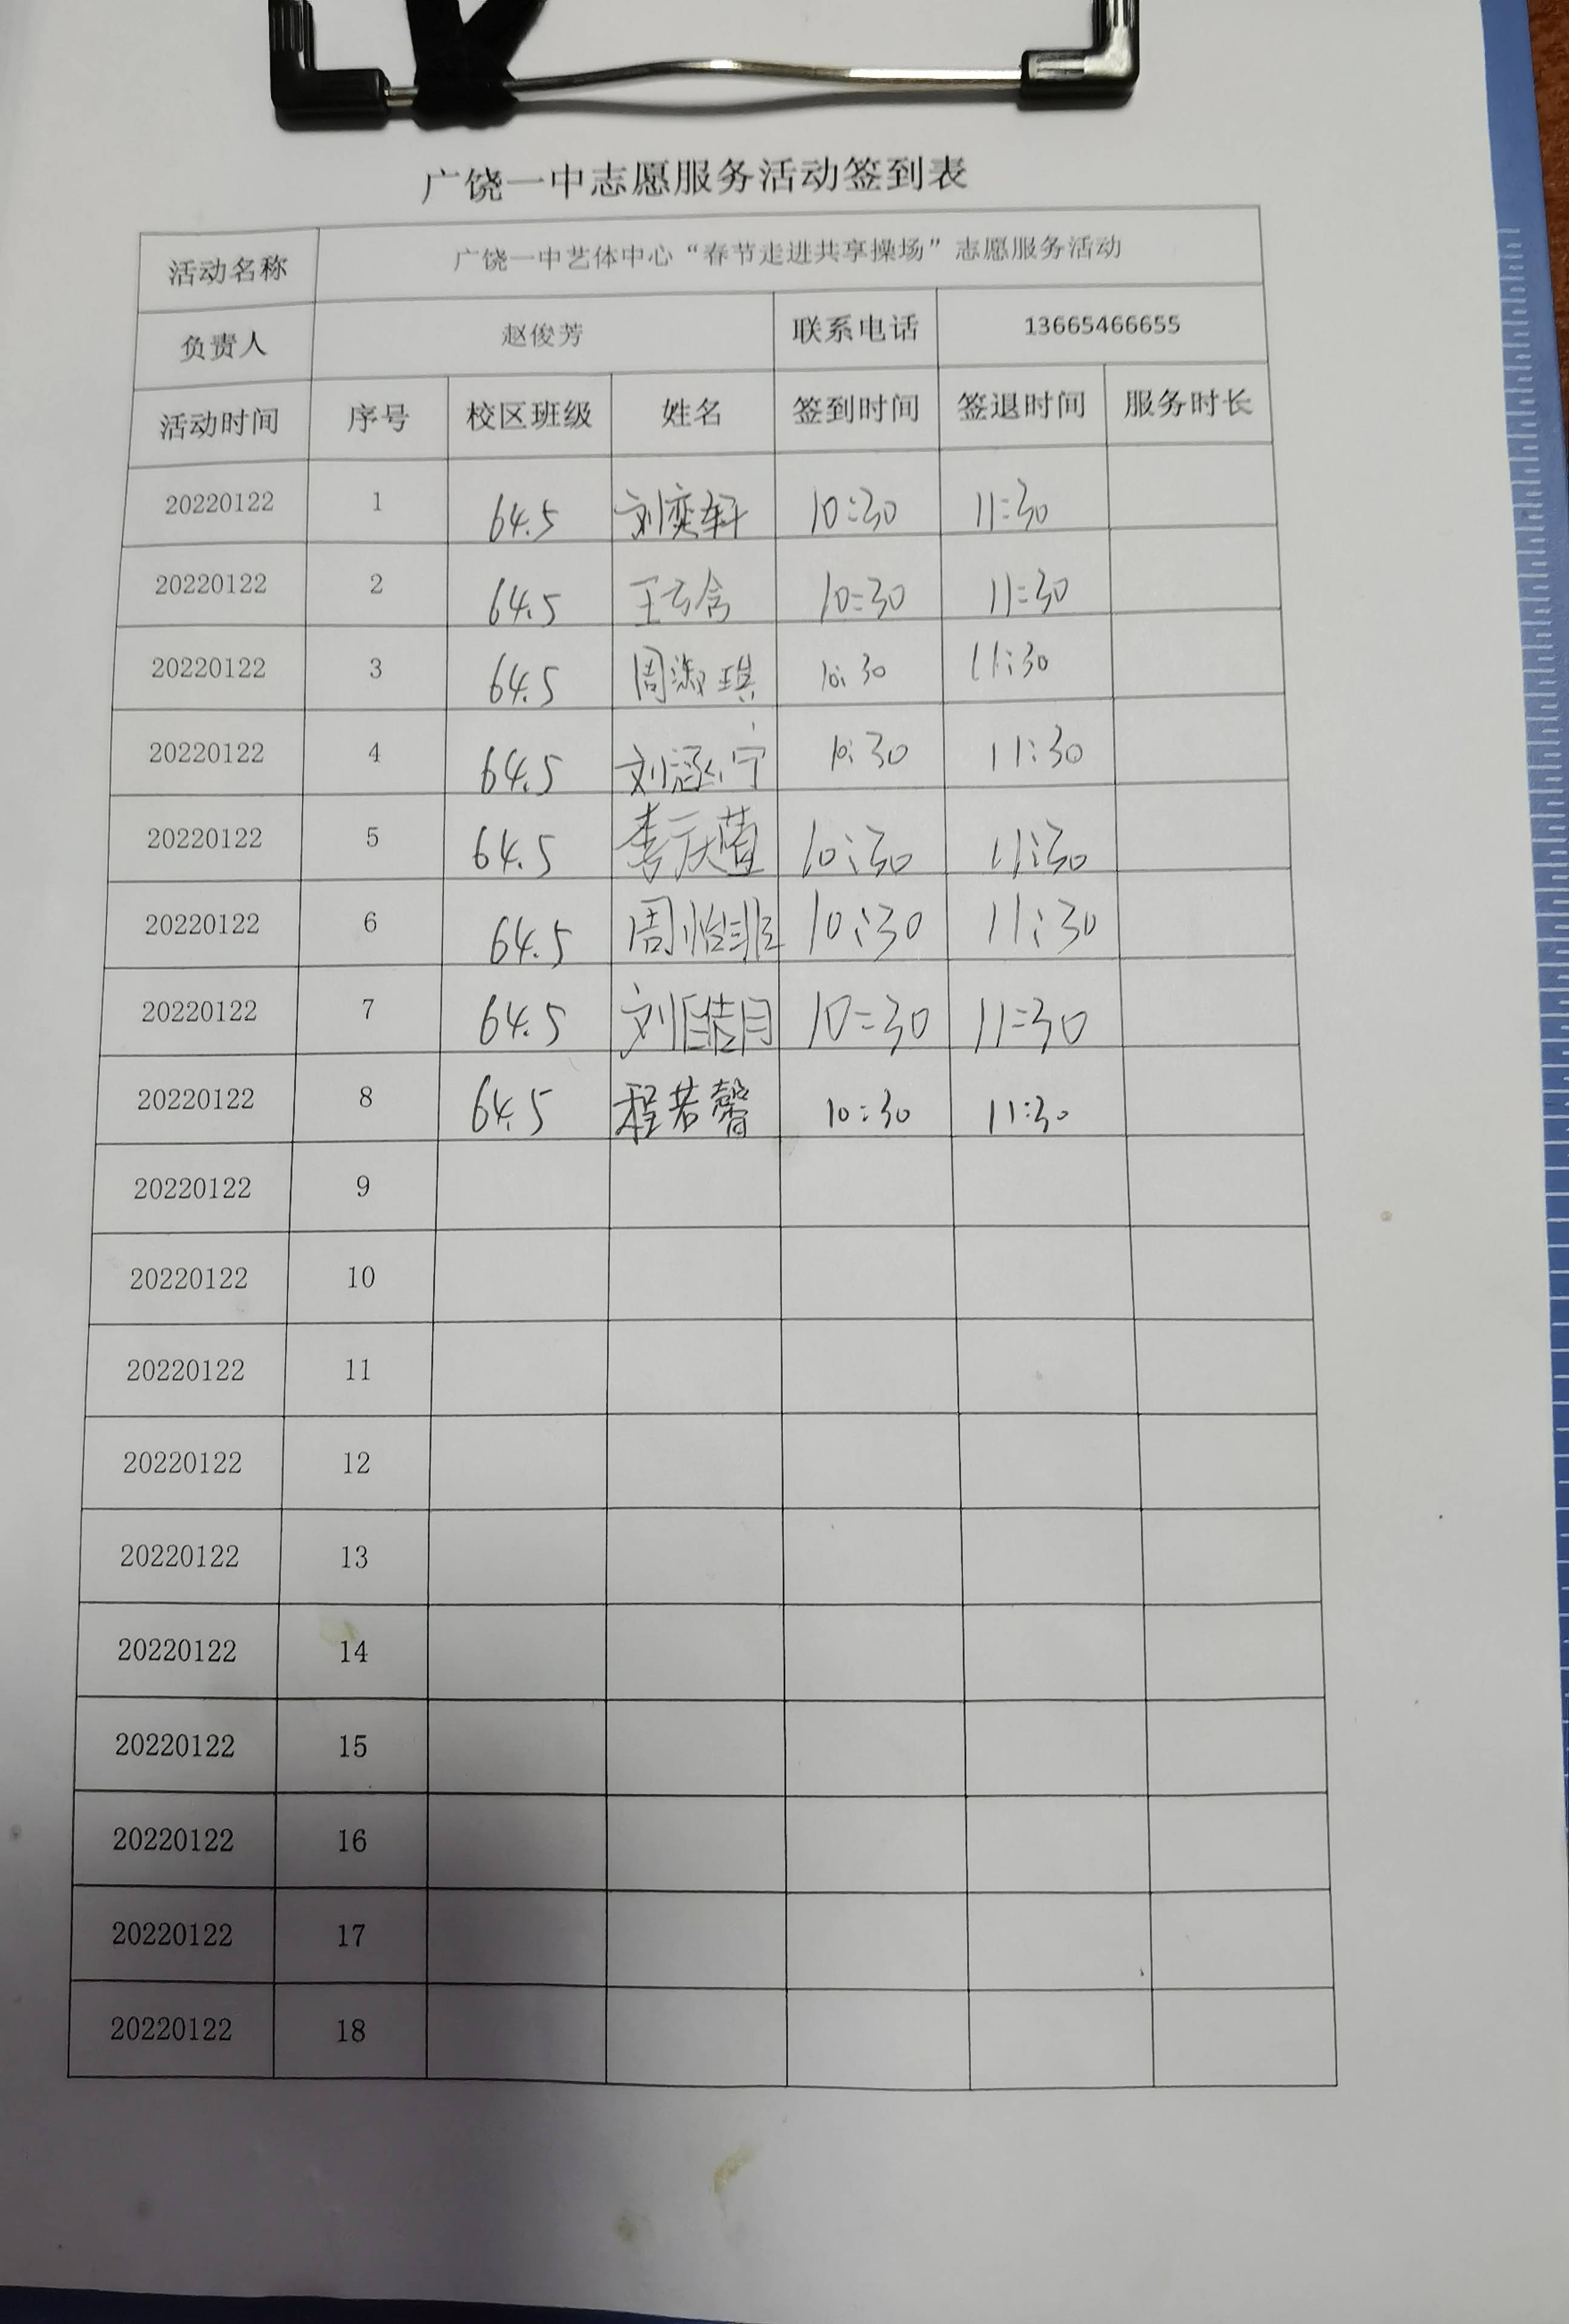 广饶一中志愿服务活动签到表
活动名称 广饶一中艺体中心“春节走进共享操场”志愿服务活动
负责人 赵俊芳 联系电话 13665466655
活动时间 序号 校区班级 姓名 签到时间 签退时间 服务时长
20220122 1 64.5 刘奕轩 10:30 11:30
20220122 2 64.5 王云含 10:30 11:30
20220122 3 64.5 周淑琪 10:30 11:30
20220122 4 64.5 刘涵宁 10:30 11:30
20220122 5 64.5 李庆茵 10:30 11:30
20220122 6 64.5 周怡 10:30 11:30
20220122 7 64.5 刘皓月 10:30 11:30
20220122 8 64.5 程若馨 10:30 11:30
20220122 9
20220122 10
20220122 11
20220122 12
20220122 13
20220122 14
20220122 15
20220122 16
20220122 17
20220122 18